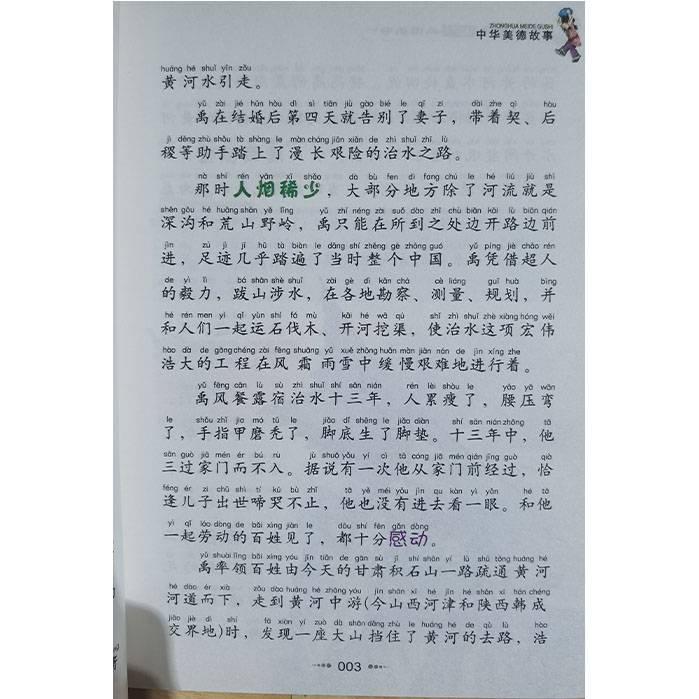 ZHONGHUA MEIDE GUSHI
中华美德故事
huáng hé shuǐ yǐn zǒu
黄河水引走。
yǔ zài jié hūn hòu dì sì tiān jiù gào bié le qī zi dài zhe qì hòu
禹在结婚后第四天就告别了妻子，带着契、后
jì děng zhù shǒu tà shàng le màn cháng jiān xiǎn de zhì shuǐ zhī lù
稷等助手踏上了漫长艰险的治水之路。
nà shí rén yān xī shǎo dà bù fen dì fang chú le hé liú jiù shì
那时人烟稀少，大部分地方除了河流就是
shēn gōu hé huāng shān yě lǐng yǔ zhǐ néng zài suǒ dào zhī chù biān kāi lù biān qián
深沟和荒山野岭，禹只能在所到之处边开路边前
jìn zú jì jī hū tà biàn le dāng shí zhěng gè zhōng guó yǔ píng jiè chāo rén
进，足迹几乎踏遍了当时整个中国。禹凭借超人
de yì lì bá shān shè shuǐ zài gè dì kān chá cè liáng guī huà bìng
的毅力，跋山涉水，在各地勘察、测量、规划，并
hé rén men yì qǐ yùn shí fá mù kāi hé wā qú shǐ zhì shuǐ zhè xiàng hóng wěi
和人们一起运石伐木、开河挖渠，使治水这项宏伟
hào dà de gōng chéng zài fēng shuāng yǔ xuě zhōng huǎn màn jiān nán de jìn xíng zhe
浩大的工程在风霜雨雪中缓慢艰难地进行着。
yǔ fēng cān lù sù zhì shuǐ shí sān nián rén lèi shòu le yāo yā wān
禹风餐露宿治水十三年，人累瘦了，腰压弯
le shǒu zhǐ jia mó tū le jiǎo dǐ shēng le jiǎo diàn shí sān nián zhōng tā
了，手指甲磨秃了，脚底生了脚垫。十三年中，他
sān guò jiā mén ér bú rù jù shuō yǒu yí cì tā cóng jiā mén qián jīng guò qià
三过家门而不入。据说有一次他从家门前经过，恰
féng ér zi chū shì tí kū bù zhǐ tā yě méi yǒu jìn qu kàn yì yǎn hé tā
逢儿子出世啼哭不止，他也没有进去看一眼。和他
yì qǐ láo dòng de bǎi xìng jiàn le dōu shí fēn gǎn dòng
一起劳动的百姓见了，都十分感动。
yǔ shuài lǐng bǎi xìng yóu jīn tiān de gān sù jī shí shān yí lù shū tōng huáng hé
禹率领百姓由今天的甘肃积石山一路疏通黄河
hé dào ér xià zǒu dào huáng hé zhōng yóu jīn shān xī hé jīn hé shǎn xī hán chéng
河道而下，走到黄河中游(今山西河津和陕西韩成
jiāo jiè dì shí fā xiàn yí zuò dà shān dǎng zhù le huáng hé de qù lù hào
交界地)时，发现一座大山挡住了黄河的去路，浩
003